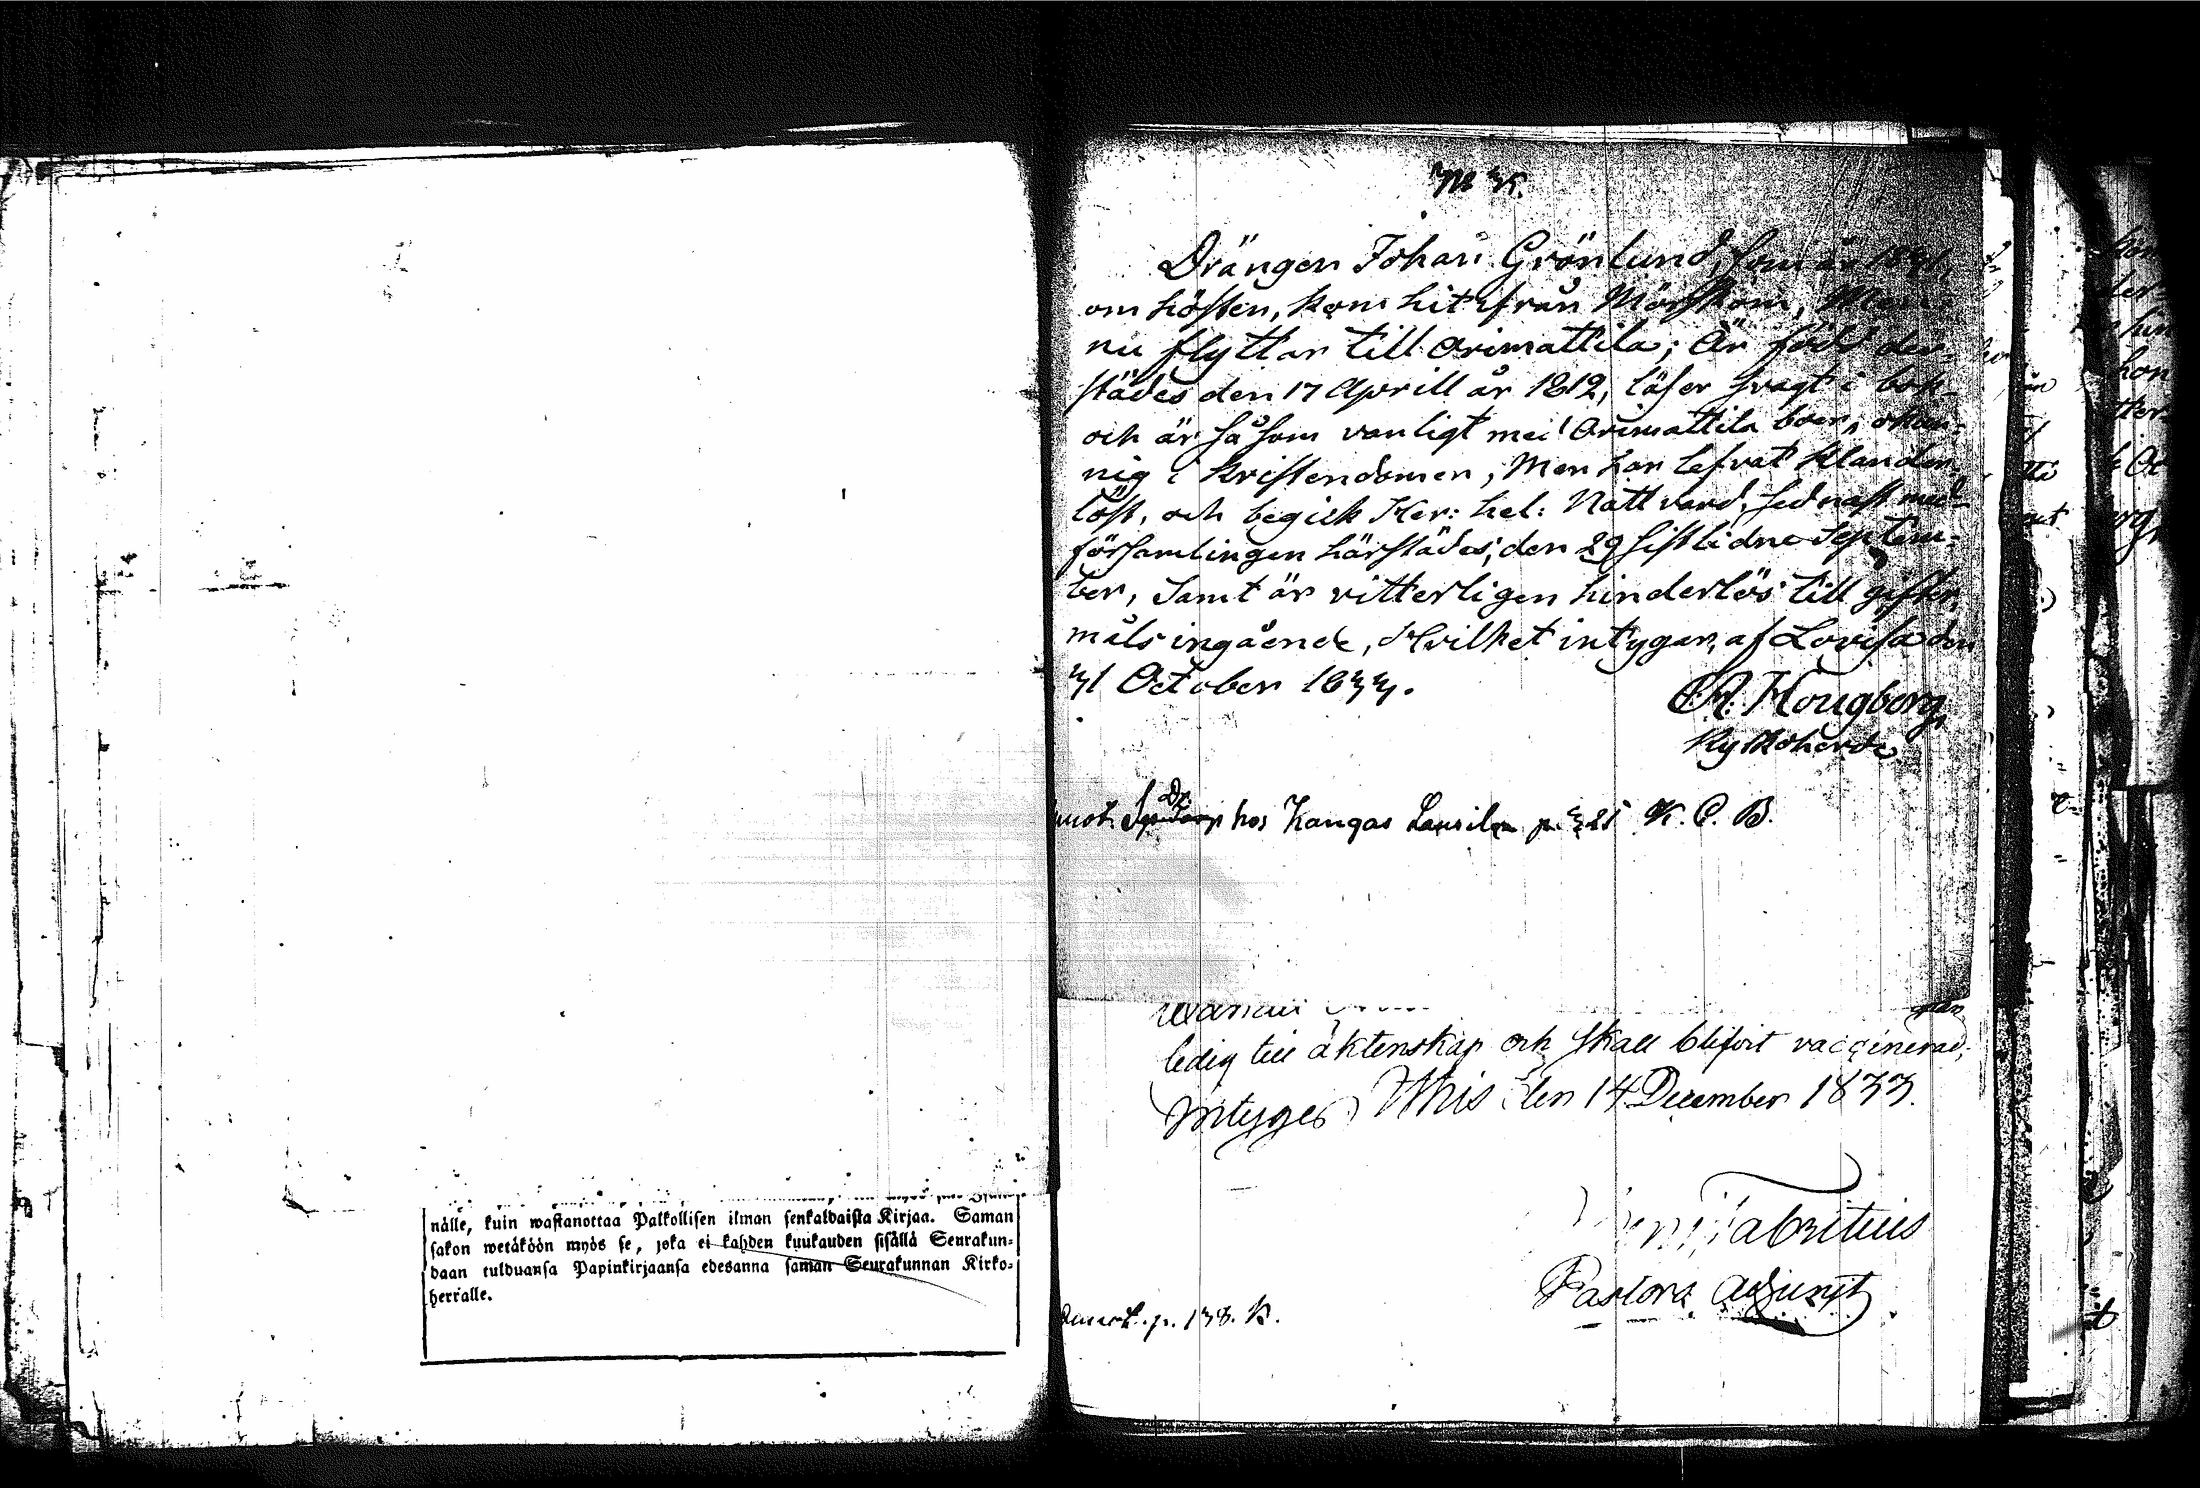 nälle, kuin wastanottaa Palkollisen ilman senkaldaista Kirjaa. Saman
sakon wetäköön myös se, joka ei kahden kuukauden sisällä Seurakun-
daan tulduansa Papinkirjaansa edesanna saman Seurakunnan Kirko-
herralle.
Drängen Johan Grönlund, som år 1831,
om hösten, kom hit ifrån Mörskom, Men
nu flyttar till Orimattila; Är född der-
städes den 17 Aprill år 1812, läser svagt i bok
och är såsom vanligt med Orimattila boer, okun-
nig i kristendomen, Men har lefvat klander-
löst, och begick Her: hel: Nattvard, sednast med
församlingen härstädes, den 29 sistlidne Septem-
ber, Samt är vitterligen hinderlös till gifter-
måls ingående, Hvilket intygar, af Lovisa den
31 October 1833.
Hougberg
Kyrkoherde
hos Kangas Lausila p. 321 K. C. B.
ledig till äktenskap och skall blifvit vaccinerad,
intyges Ithis den 14 December 1833.
Fabritius
Pastors Adjunct
p. 138. K.